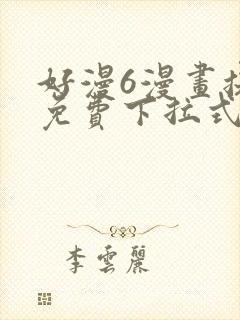 好漫6漫畫
免費下拉式
李雲麗